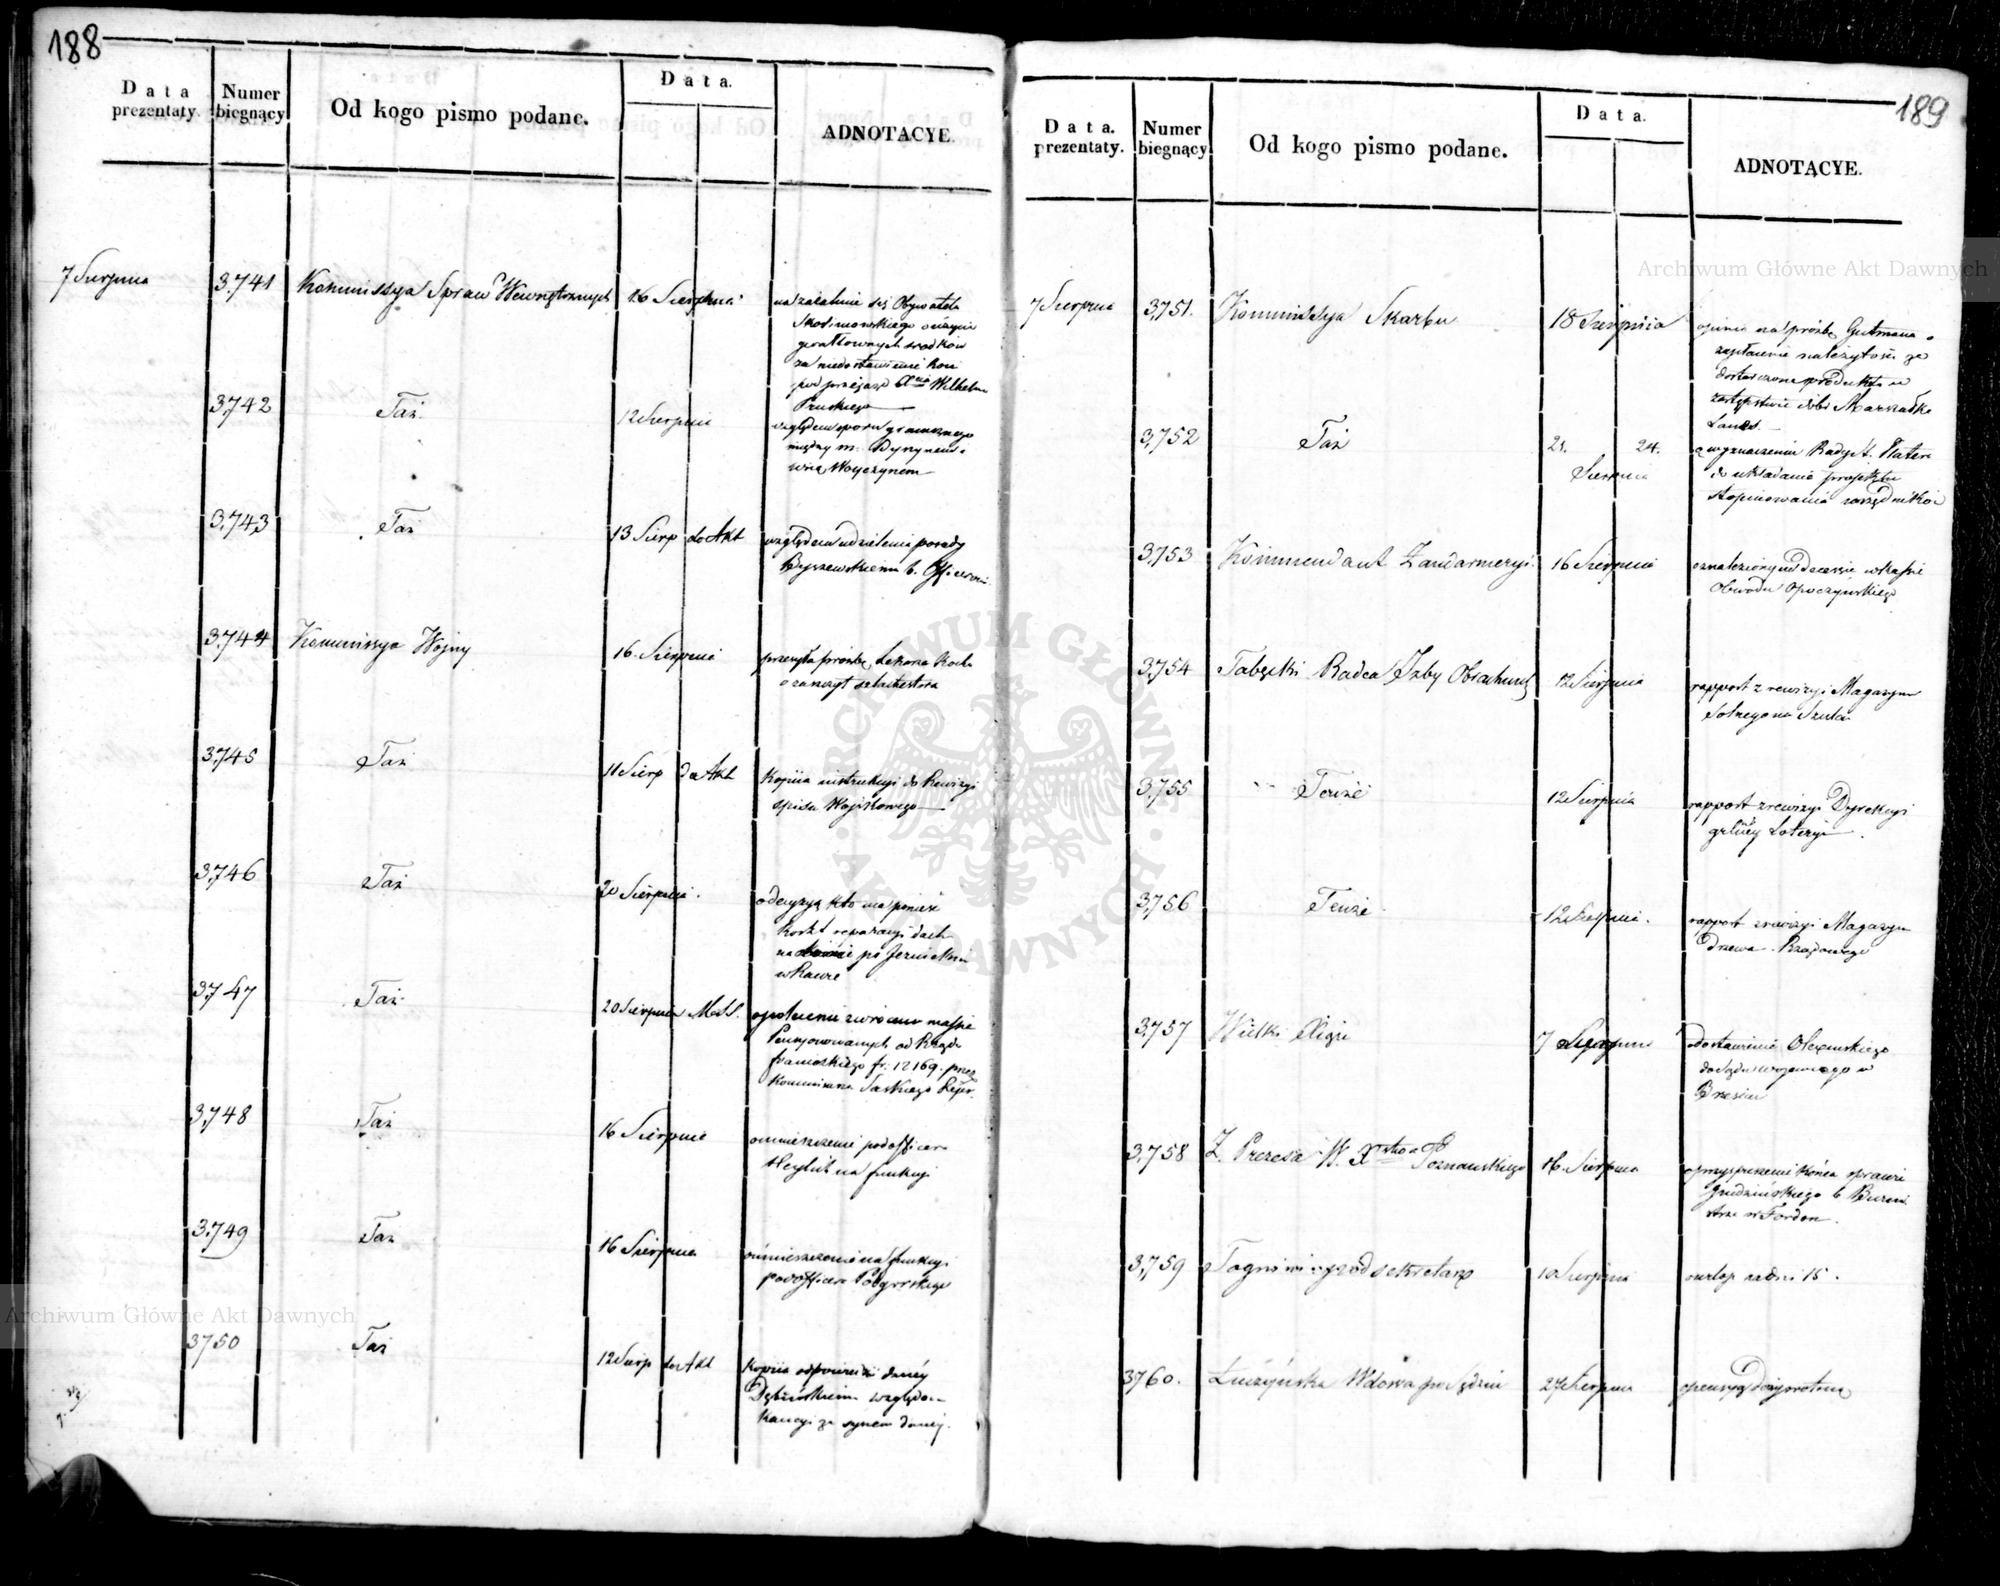 188
Data prezentaty.
Numer biegnący
Od kogo pismo podane.
Data.
ADNOTACYE.
7 Sierpnia
3,741
Kommissya Spraw Wewnętrznych
16 Sierpnia
na żalenie się Obywatela
Skotnowskiego o użycie
gwałtownych srodków
za niedostawienie koni
pod przejazd Xcia Wilhelma
Pruskiego
3,742
Taż
12 Sierpnia
względem sporu granicznego
między m.
wsią Woyczynem
3,743
Taż
13 Sierp do Akt
względem udzielenia posady
Byszewskiemu b. Officerowi
3,744
Kommissya Wojny
16 Sierpnia
przesyła prośbę Lekarza Kocha
o zaszczyt szlachectwa
3,745
Taż
11 Sierp do Akt
Kopiia instrukcyi do Rewizyi
spisu Woyskowego
3,746
Taż
20 Sierpnia
o decyzyą kto ma ponieść
koszt reparacyi dachu
na po Jezuickim
w Rawie
3,747
Taż
20 Sierpnia
o poleceniu zwrócenia massie
Pensyonowanych od Rządu
francuskiego fr: 12169. przez
Kommissarza Saskiego
3,748
Taż
16 Sierpnia
o umieszczenie podofficera
na funkcyi
3,749
Taż
16 Sierpnia
o umieszczenie na funkcyi
podofficera
3,750
Taż
12 Sierp do Akt
Kopiia odpowiedzi daney
Dębińskiemu względem
Kaucyi za synem daney.
189
Data. prezentaty.
Numer biegnący
Od kogo pismo podane.
Data.
ADNOTACYE.
7 Sierpnia
3,751.
Kommissya Skarbu
18 Sierpnia
opinia na prośbę Gutmana o
zapłacenie należytości za
dostarczone produkta w
zastępstwie dóbr Marszałka
3,752
Taż
21. 24.
Sierpnia
o wyznaczeniu Radcy St. Platera
do układania projektu
stopniowania urzędników
3,753
Kommendant Żandarmeryi
16 Sierpnia
o znalezionym deceſsie w kaſsie
Obwodu Opoczyńskiego
3,754
Tabęcki Radca Izby Obrachunk
12 Sierpnia
rapport z rewizyi Magazynu
Solnego na Szulcu
3,755
Tenże
12 Sierpnia
rapport z rewizyi Dyrekcyi
główney Loteryi
3,756
Tenże
12 Sierpnia.
rapport z rewizyi Magazynu
Drzewa Rządowego
3,757
Wielki Xiąże
7 Sierpnia
o dostawienie Olexińskiego
do Sądu wojennego w
Brześciu
3,758
Z. Prezesa W. Xstwa Poznańskiego
16 Sierpnia
o przyspieszenie końca sprawy
Grudzińskiego b Burmi
strza w Fordon.
3,759
podsekretarz
10 Sierpnia
o urlop na dni 15.
3760.
Łuczyńska Wdowa po Sędzim
27 Sierpnia
o pensyą dożywotnią
ARCHIWUM GŁÓWNE AKT DAWNYCH
Archiwum Główne Akt Dawnych
Archiwum Główne Akt Dawnych